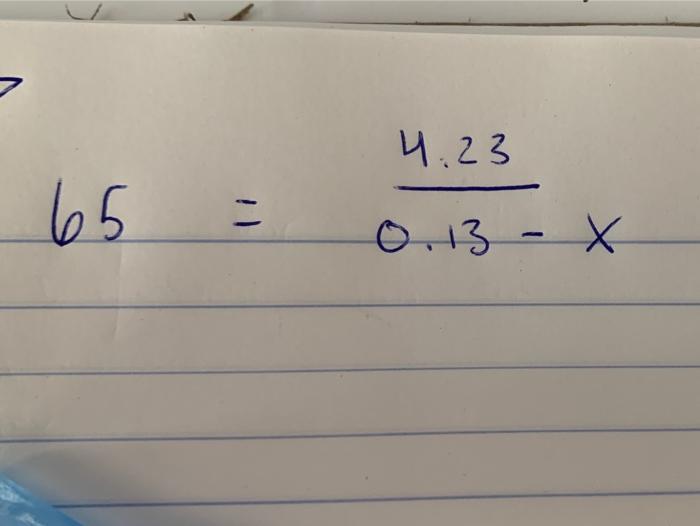 65 = 4.23 / 0.13 - x